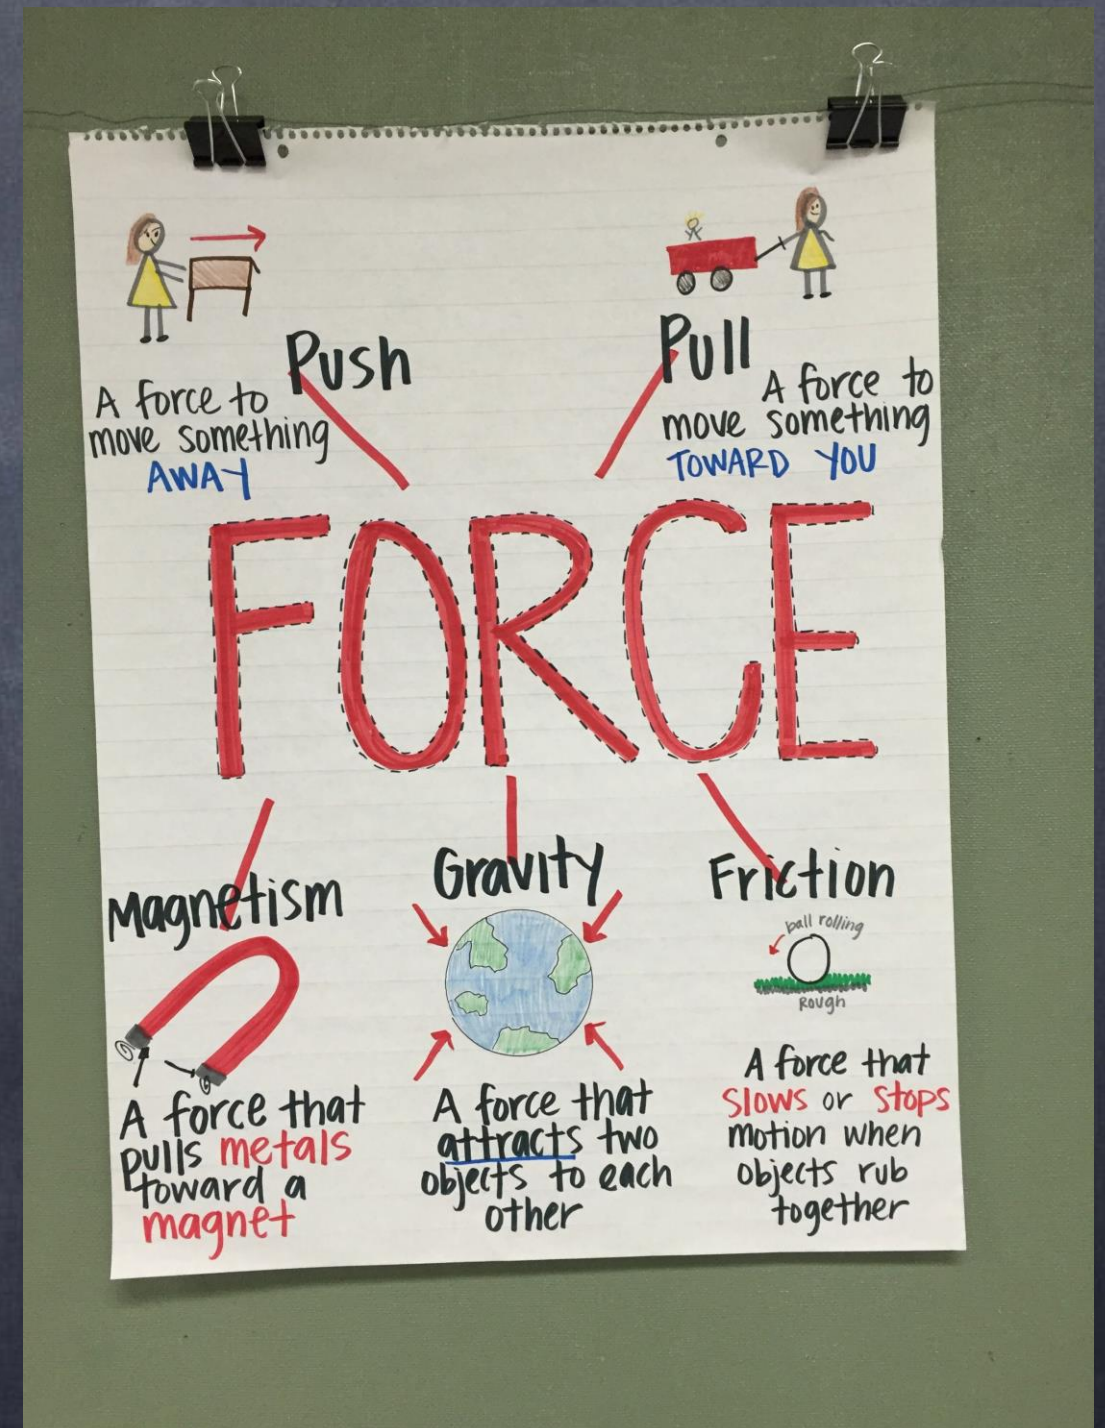 Push
A force to
move something
AWAY
Pull
A force to
move something
TOWARD YOU
FORCE
Magnetism
A force that
pulls metals
toward a
magnet
Gravity
A force that
attracts two
objects to each
other
Friction
ball rolling
Rough
A force that
slows or stops
motion when
objects rub
together